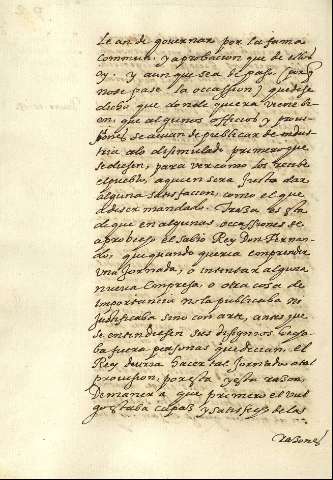 se an de governar por la fama
commun, y aprobacion que de ellos
ay. y aunque sea de paso (porq
no se pase la occassion) quedese
dicho que donde quiera viene bi-
en, que algunos officios y provi-
siones se avian de publicar de indus-
tria a lo disimulado primero que
se diesen, para ver como los recebe
el pueblo, a quien sera justo dar
alguna satisfacion, como el que
a de ser mandado. Traza es esta
de que en algunas occassiones se
aprobecho el sabio Rey Don Fernan-
do, que quando queria emprender
una Jornada, o intentar alguna
nueva Empresa, o otra cosa de
importancia no la publicaba ni
justificaba sino con arte, antes que
se entendiesen sus disignios echa-
ba fuera personas que decian, el
Rey devria hacer tal Jornada o tal
provision, por esta y esta razon.
De manera que primero el vul-
go estaba capaz y satisfecho de las
razones